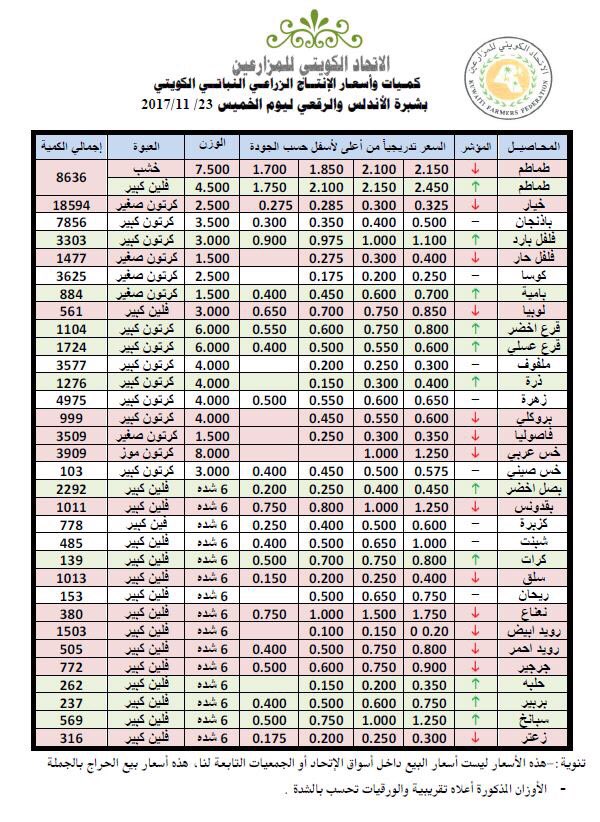 الاتحاد الكويتي للمزارعين
كميات وأسعار الإنتاج الزراعي النباتي الكويتي
بشبرة الأندلس والرقعي ليوم الخميس 23/ 11/ 2017
الاتحاد الكويتي للمزارعين
KUWAITI FARMERS FEDERATION
المحاصيل المؤشر السعر تدريجياً من أعلى لأسفل حسب الجودة الوزن العبوة إجمالي الكمية
طماطم ↓ 2.150 2.100 1.850 1.700 7.500 خشب 8636
طماطم ↑ 2.450 2.150 2.100 1.750 4.500 فلين كبير
خيار ↓ 0.325 0.300 0.285 0.275 2.500 كرتون صغير 18594
باذنجان – 0.500 0.400 0.350 0.300 3.500 كرتون كبير 7856
فلفل بارد ↑ 1.100 1.000 0.975 0.900 3.000 كرتون كبير 3303
فلفل حار ↓ 0.400 0.300 0.275 1.500 كرتون صغير 1477
كوسا – 0.250 0.200 0.175 2.500 كرتون صغير 3625
بامية ↑ 0.700 0.600 0.450 0.400 1.500 كرتون صغير 884
لوبيا ↓ 0.850 0.750 0.700 0.650 3.000 فلين كبير 561
قرع اخضر ↑ 0.800 0.750 0.600 0.550 6.000 كرتون كبير 1104
قرع عسلي ↑ 0.600 0.550 0.500 0.400 6.000 كرتون كبير 1724
ملفوف – 0.300 0.250 0.200 4.000 كرتون كبير 3577
ذرة ↑ 0.400 0.300 0.150 4.000 كرتون كبير 1276
زهرة – 0.650 0.600 0.550 0.500 4.000 كرتون كبير 4975
بروكلي ↓ 0.600 0.550 0.450 4.000 كرتون كبير 999
فاصوليا ↓ 0.350 0.300 0.250 1.500 كرتون صغير 3509
خس عربي ↓ 1.250 1.000 8.000 كرتون موز 3909
خس صيني – 0.575 0.500 0.450 0.400 3.000 كرتون كبير 103
بصل اخضر ↑ 0.450 0.400 0.250 0.200 6 شده فلين كبير 2292
بقدونس ↓ 1.250 1.000 0.800 0.750 6 شده فلين كبير 1011
كزبرة – 0.600 0.500 0.400 0.250 6 شده فين كبير 778
شبنت – 1.000 0.650 0.500 0.400 6 شده فلين كبير 485
كرات ↑ 0.800 0.750 0.700 0.500 6 شده فلين كبير 139
سلق ↓ 0.400 0.250 0.200 0.150 6 شده فلين كبير 1013
ريحان – 0.750 0.650 0.500 6 شده فلين كبير 153
نعناع ↓ 1.750 1.500 1.000 0.750 6 شده فلين كبير 380
رويد ابيض ↓ 0 0.20 0.150 0.100 6 شده فلين كبير 1503
رويد احمر ↓ 0.800 0.750 0.500 0.400 6 شده فلين كبير 505
جرجير ↓ 0.900 0.750 0.600 0.500 6 شده فلين كبير 772
حلبه ↑ 0.350 0.200 0.150 6 شده فلين كبير 262
بربير ↑ 0.750 0.600 0.500 0.400 6 شده فلين كبير 237
سبانخ ↑ 1.250 1.000 0.750 0.500 6 شده فلين كبير 569
زعتر ↓ 0.300 0.250 0.200 0.175 6 شده فلين كبير 316
تنوية :-هذه الأسعار ليست أسعار البيع داخل أسواق الإتحاد أو الجمعيات التابعة لنا، هذه أسعار بيع الحراج بالجملة
- الأوزان المذكورة أعلاه تقريبية والورقيات تحسب بالشدة .